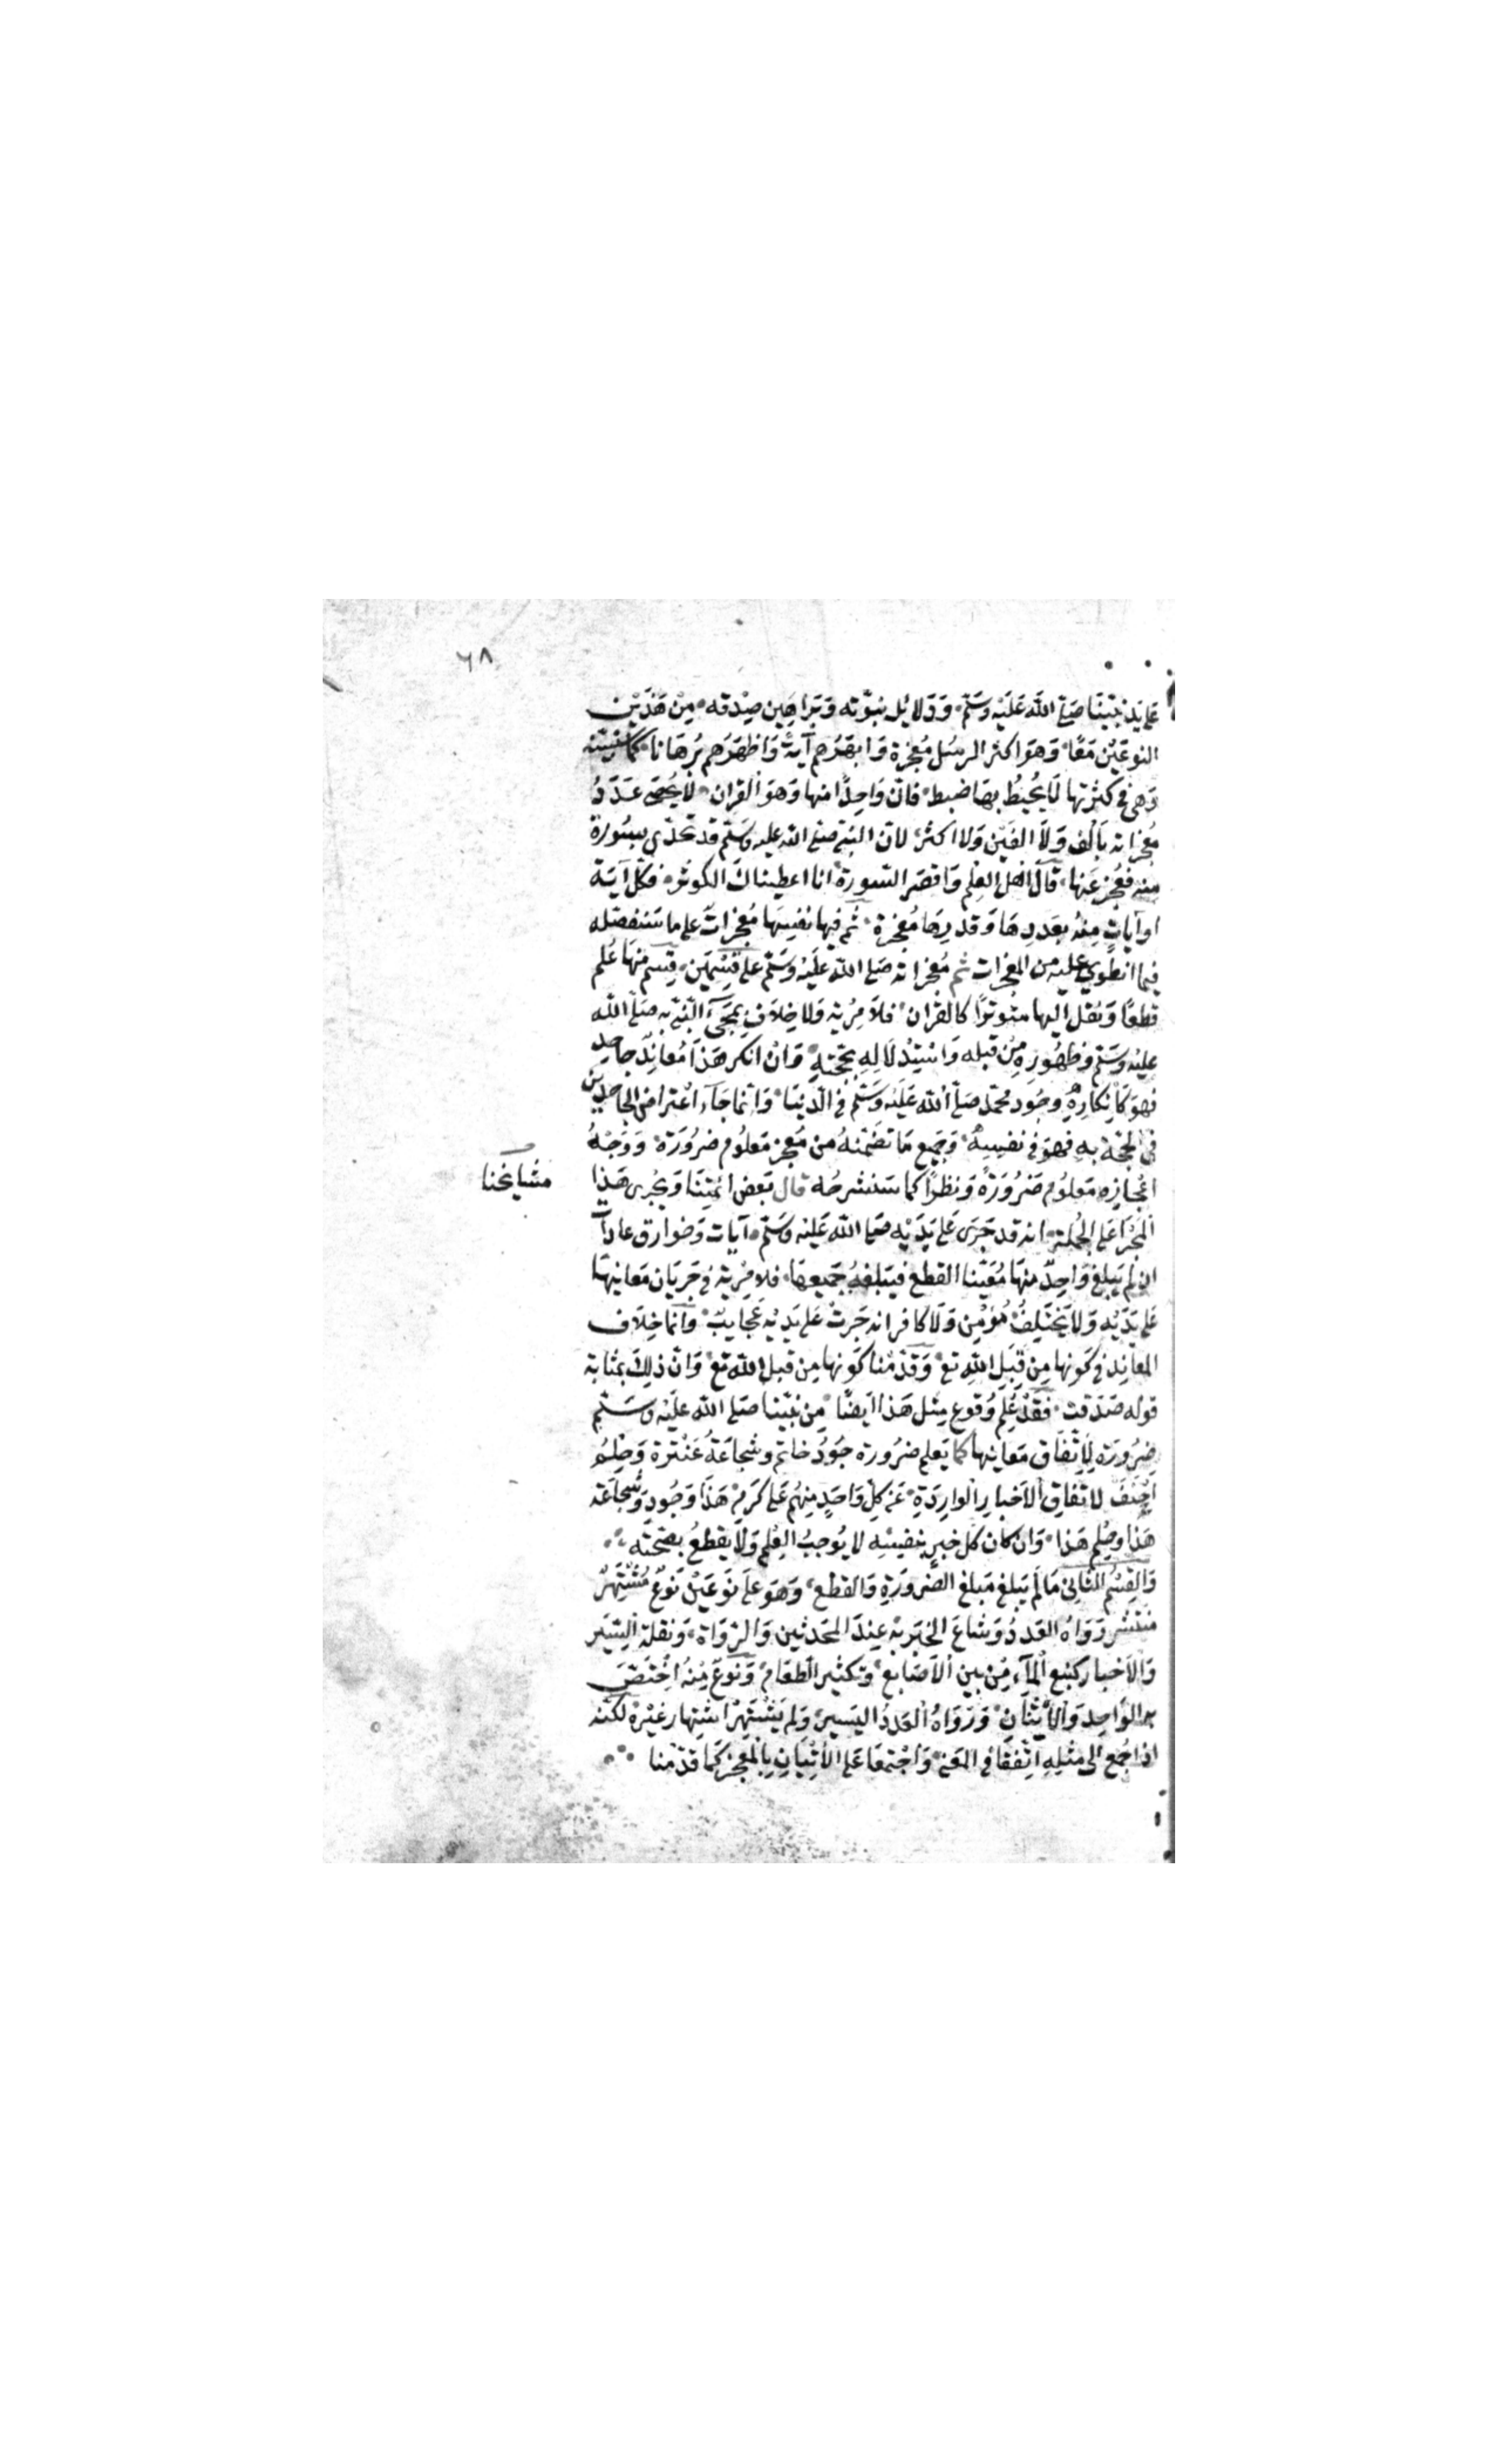 ٦٨
على يد نبينا صلى الله عليه وسلم ودلائل نبوته وبراهين صدقه من هذين
النوعين معا وهو اكثر الرسل معجزة وابهرهم آية واظهرهم برهانا كما سنبينه
وهي في كثرتها لا يحيط بها ضبط فان واحدا منها وهو القران لا يحصى عدد
معجزاته بالف ولا الفين ولا اكثر لان النبي صلى الله عليه وسلم قد تحدى بسورة
منه فعجز عنها قال اهل العلم واقصر السورة انا اعطيناك الكوثر فكل آية
او آيات منه بعددها وقدرها معجزة ثم فيها نفسها معجزات على ما سنفصله
فيما انطوى عليه من المعجزات ثم معجزاته صلى الله عليه وسلم على قسمين قسم منها علم
قطعا ونقل الينا متوترا كالقران فلا مرية ولا خلاف بمجيء النبي به صلى الله
عليه وسلم وظهوره من قبله واستدلاله بحجته وان انكر هذا معاند جاحد
فهو كانكاره وجود محمد صلى الله عليه وسلم في الدنيا وانما جاء اعتراض الجاحدين
في الحجة به فهو في نفسه وجميع ما تضمنه من معجز معلوم ضرورة ووجه
اعجازه معلوم ضرورة ونظرا كما سنشرحه قال بعض ائمتنا ويجرى هذا
مشايخنا
المجرا على الجملة انه قد جرى على يديه صلى الله عليه وسلم آيات وخوارق عادات
ان لم يبلغ واحد منها معينا القطع فيبلغه جميعها فلا مرية في جريان معانيها
على يديه ولا يختلف مؤمن ولا كافر انه جرت على يديه عجايب وانما خلاف
المعاند في كونها من قبل الله تع وقد قدمنا كونها من قبل الله تع وان ذلك بمثابة
قوله صدقت فقد علم وقوع مثل هذا ايضا من نبينا صلى الله عليه وسلم
ضرورة لاتفاق معانيها كما يعلم ضرورة جود حاتم وشجاعة عنترة وحلم
احنف لاتفاق الاخبار الواردة عن كل واحد منهم على كرم هذا وجود وشجاعة
هذا وحلم هذا وان كان كل خبر بنفسه لا يوجب العلم ولا يقطع بصحته
والقسم الثاني ما لم يبلغ مبلغ الضرورة والقطع وهو على نوعين نوع مشتهر
منتشر رواه العدد وشاع الخبر به عند المحدثين والرواة ونقلة السير
والاخبار كنبع الماء من بين الاصابع وتكثير الطعام ونوع منه اختص
به الواحد والاثنان ورواه العدد اليسير ولم يشتهر اشتهار غيره لكنه
اذا جمع الى مثله اتفقا في المعنى واجتمعا على الاتيان بالمعجز كما قدمنا